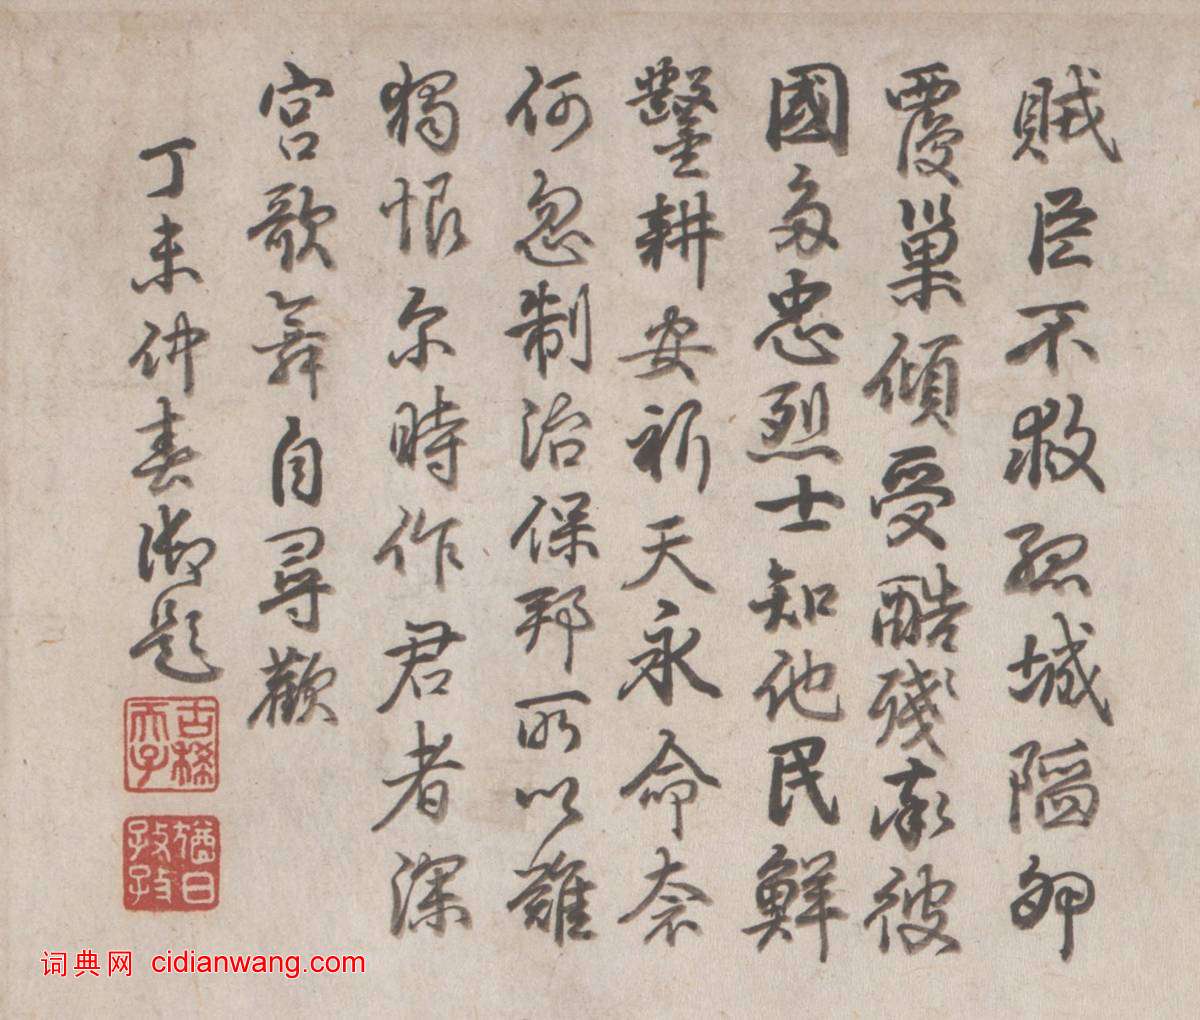 賊臣不救孤城陷卵
覆巢傾受酷殘哀彼
國多忠烈士知他民鮮
鑿耕安祈天永命奈
何忽制治保邦所以難
獨恨尔時作君者深
宮歌舞自尋歡
丁未仲春御題
古稀天子
猶日孜孜
词典网 cidianwang.com